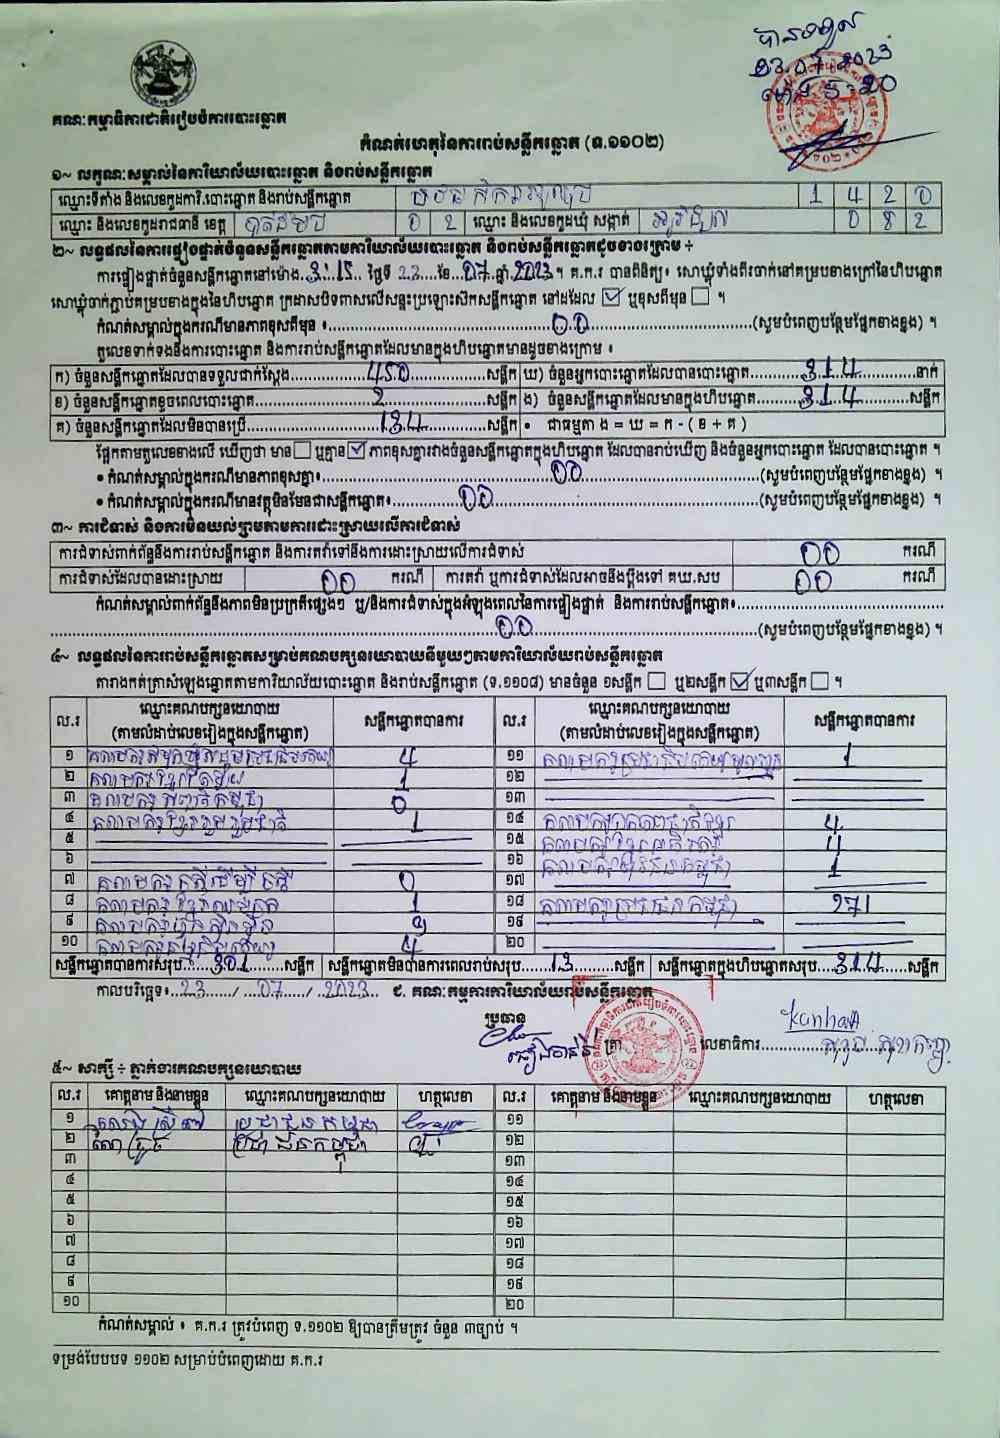 បានទទួល
23.07.2023
ម៉ោង 5:20
គណៈកម្មាធិការជាតិរៀបចំការបោះឆ្នោត
កំណត់ហេតុនៃការរាប់សន្លឹកឆ្នោត (ទ.១១០២)
១~ លក្ខណៈសម្គាល់នៃការិយាល័យបោះឆ្នោត និងរាប់សន្លឹកឆ្នោត
ឈ្មោះទីតាំង និងលេខកូដការិ.បោះឆ្នោត និងរាប់សន្លឹកឆ្នោត 1 4 2 0
ឈ្មោះ និងលេខកូដរាជធានី ខេត្ត បាត់ដំបង 0 2 ឈ្មោះ និងលេខកូដឃុំ សង្កាត់ 0 8 2
២~ លទ្ធផលនៃការផ្ទៀងផ្ទាត់ចំនួនសន្លឹកឆ្នោតតាមការិយាល័យបោះឆ្នោត និងរាប់សន្លឹកឆ្នោតដូចខាងក្រោម ÷
ការផ្ទៀងផ្ទាត់ចំនួនសន្លឹកឆ្នោតនៅម៉ោង 3:15 ថ្ងៃទី 23 ខែ 07 ឆ្នាំ 2023 ។ គ.ក.រ បានពិនិត្យ៖ សោឃ្លុំទាំងពីរចាក់នៅគម្របខាងក្រៅនៃហិបឆ្នោត
សោឃ្លុំចាក់ភ្ជាប់គម្របខាងក្នុងនៃហិបឆ្នោត ក្រដាសបិទពាសលើសន្ទះប្រឡោះស៊កសន្លឹកឆ្នោត នៅដដែល ☑ ឬខុសពីមុន ☐ ។
កំណត់សម្គាល់ក្នុងករណីមានភាពខុសពីមុន ៖ 00 (សូមបំពេញបន្ថែមផ្នែកខាងខ្នង) ។
តួលេខទាក់ទងនឹងការបោះឆ្នោត និងការរាប់សន្លឹកឆ្នោតដែលមានក្នុងហិបឆ្នោតមានដូចខាងក្រោម ៖
ក) ចំនួនសន្លឹកឆ្នោតដែលបានទទួលជាក់ស្តែង 450 សន្លឹក ឃ) ចំនួនអ្នកបោះឆ្នោតដែលបានបោះឆ្នោត 314 នាក់
ខ) ចំនួនសន្លឹកឆ្នោតខូចពេលបោះឆ្នោត 2 សន្លឹក ង) ចំនួនសន្លឹកឆ្នោតដែលមានក្នុងហិបឆ្នោត 314 សន្លឹក
គ) ចំនួនសន្លឹកឆ្នោតដែលមិនបានប្រើ 134 សន្លឹក • ជាធម្មតា ង = ឃ = ក - ( ខ + គ )
ផ្អែកតាមតួលេខខាងលើ ឃើញថា មាន ☐ ឬគ្មាន ☑ ភាពខុសគ្នារវាងចំនួនសន្លឹកឆ្នោតក្នុងហិបឆ្នោត ដែលបានរាប់ឃើញ និងចំនួនអ្នកបោះឆ្នោត ដែលបានបោះឆ្នោត ។
• កំណត់សម្គាល់ក្នុងករណីមានភាពខុសគ្នា៖ 00 (សូមបំពេញបន្ថែមផ្នែកខាងខ្នង) ។
• កំណត់សម្គាល់ក្នុងករណីមានវត្ថុមិនមែនជាសន្លឹកឆ្នោត៖ 00 (សូមបំពេញបន្ថែមផ្នែកខាងខ្នង) ។
៣~ ការជំទាស់ និងការមិនយល់ព្រមតាមការដោះស្រាយលើការជំទាស់
ការជំទាស់ពាក់ព័ន្ធនឹងការរាប់សន្លឹកឆ្នោត និងការតវ៉ាទៅនឹងការដោះស្រាយលើការជំទាស់ 00 ករណី
ការជំទាស់ដែលបានដោះស្រាយ 00 ករណី ការតវ៉ា ឬការជំទាស់ដែលអាចនឹងប្តឹងទៅ គឃ.សប 00 ករណី
កំណត់សម្គាល់ពាក់ព័ន្ធនឹងភាពមិនប្រក្រតីផ្សេងៗ ឬ/និងការជំទាស់ក្នុងអំឡុងពេលនៃការផ្ទៀងផ្ទាត់ និងការរាប់សន្លឹកឆ្នោត៖
00 (សូមបំពេញបន្ថែមផ្នែកខាងខ្នង) ។
៤~ លទ្ធផលនៃការរាប់សន្លឹកឆ្នោតសម្រាប់គណបក្សនយោបាយនីមួយៗតាមការិយាល័យរាប់សន្លឹកឆ្នោត
តារាងកត់ត្រាសំឡេងឆ្នោតតាមការិយាល័យបោះឆ្នោត និងរាប់សន្លឹកឆ្នោត (ទ.១១០៨) មានចំនួន ១សន្លឹក ☐ ឬ២សន្លឹក ☑ ឬ៣សន្លឹក ☐ ។
ល.រ ឈ្មោះគណបក្សនយោបាយ (តាមលំដាប់លេខរៀងក្នុងសន្លឹកឆ្នោត) សន្លឹកឆ្នោតបានការ ល.រ ឈ្មោះគណបក្សនយោបាយ (តាមលំដាប់លេខរៀងក្នុងសន្លឹកឆ្នោត) សន្លឹកឆ្នោតបានការ
១ 4 ១១ 1
២ 1 ១២
៣ គណបក្ស កម្ពុជា 0 ១៣
៤ គណបក្សខ្មែររួបរួមជាតិ 1 ១៤ 4
៥ ១៥ 4
៦ ១៦ 1
៧ គណបក្ស 0 ១៧
៨ គណបក្ស 1 ១៨ គណបក្សប្រជាជនកម្ពុជា 271
៩ គណបក្ស 9 ១៩
១០ គណបក្ស 4 ២០
សន្លឹកឆ្នោតបានការសរុប 301 សន្លឹក សន្លឹកឆ្នោតមិនបានការពេលរាប់សរុប 13 សន្លឹក សន្លឹកឆ្នោតក្នុងហិបឆ្នោតសរុប 314 សន្លឹក
កាលបរិច្ឆេទ៖ 23 / 07 / 2023 ៩. គណៈកម្មការការិយាល័យរាប់សន្លឹកឆ្នោត
ប្រធាន
kunha
ត្រា លេខាធិការ
៥~ សាក្សី ÷ ភ្នាក់ងារគណបក្សនយោបាយ
ល.រ គោត្តនាម និងនាមខ្លួន ឈ្មោះគណបក្សនយោបាយ ហត្ថលេខា ល.រ គោត្តនាម និងនាមខ្លួន ឈ្មោះគណបក្សនយោបាយ ហត្ថលេខា
១ ប្រជាជនកម្ពុជា ១១
២ ប្រជាជនកម្ពុជា ១២
៣ ១៣
៤ ១៤
៥ ១៥
៦ ១៦
៧ ១៧
៨ ១៨
៩ ១៩
១០ ២០
កំណត់សម្គាល់ ៖ គ.ក.រ ត្រូវបំពេញ ទ.១១០២ ឱ្យបានត្រឹមត្រូវ ចំនួន ៣ច្បាប់ ។
ទម្រង់បែបបទ ១១០២ សម្រាប់បំពេញដោយ គ.ក.រ